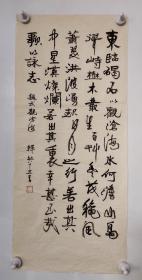 東臨碣石以觀滄海水何澹澹山島
竦峙樹木叢生百草豐茂秋風
蕭瑟洪波湧起日月之行若出其
中星漢燦爛若出其裏幸甚至哉
歌以詠志 魏武觀滄海